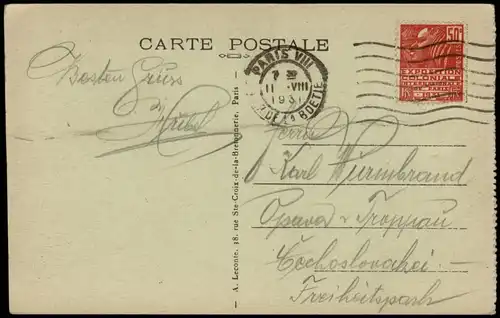 CARTE POSTALE
PARIS VIII
7 30
11 VIII
1931
R. DE LA BOETIE
50c
EXPOSITION
COLONIALE
INTERNATIONALE
PARIS
Besten Gruss
A. Leconte, 38, rue Ste-Croix-de-la-Bretonnerie, Paris
Herrn
Karl Wurmbrand
Opava - Troppau
Čechoslovakei
Freiheitspark